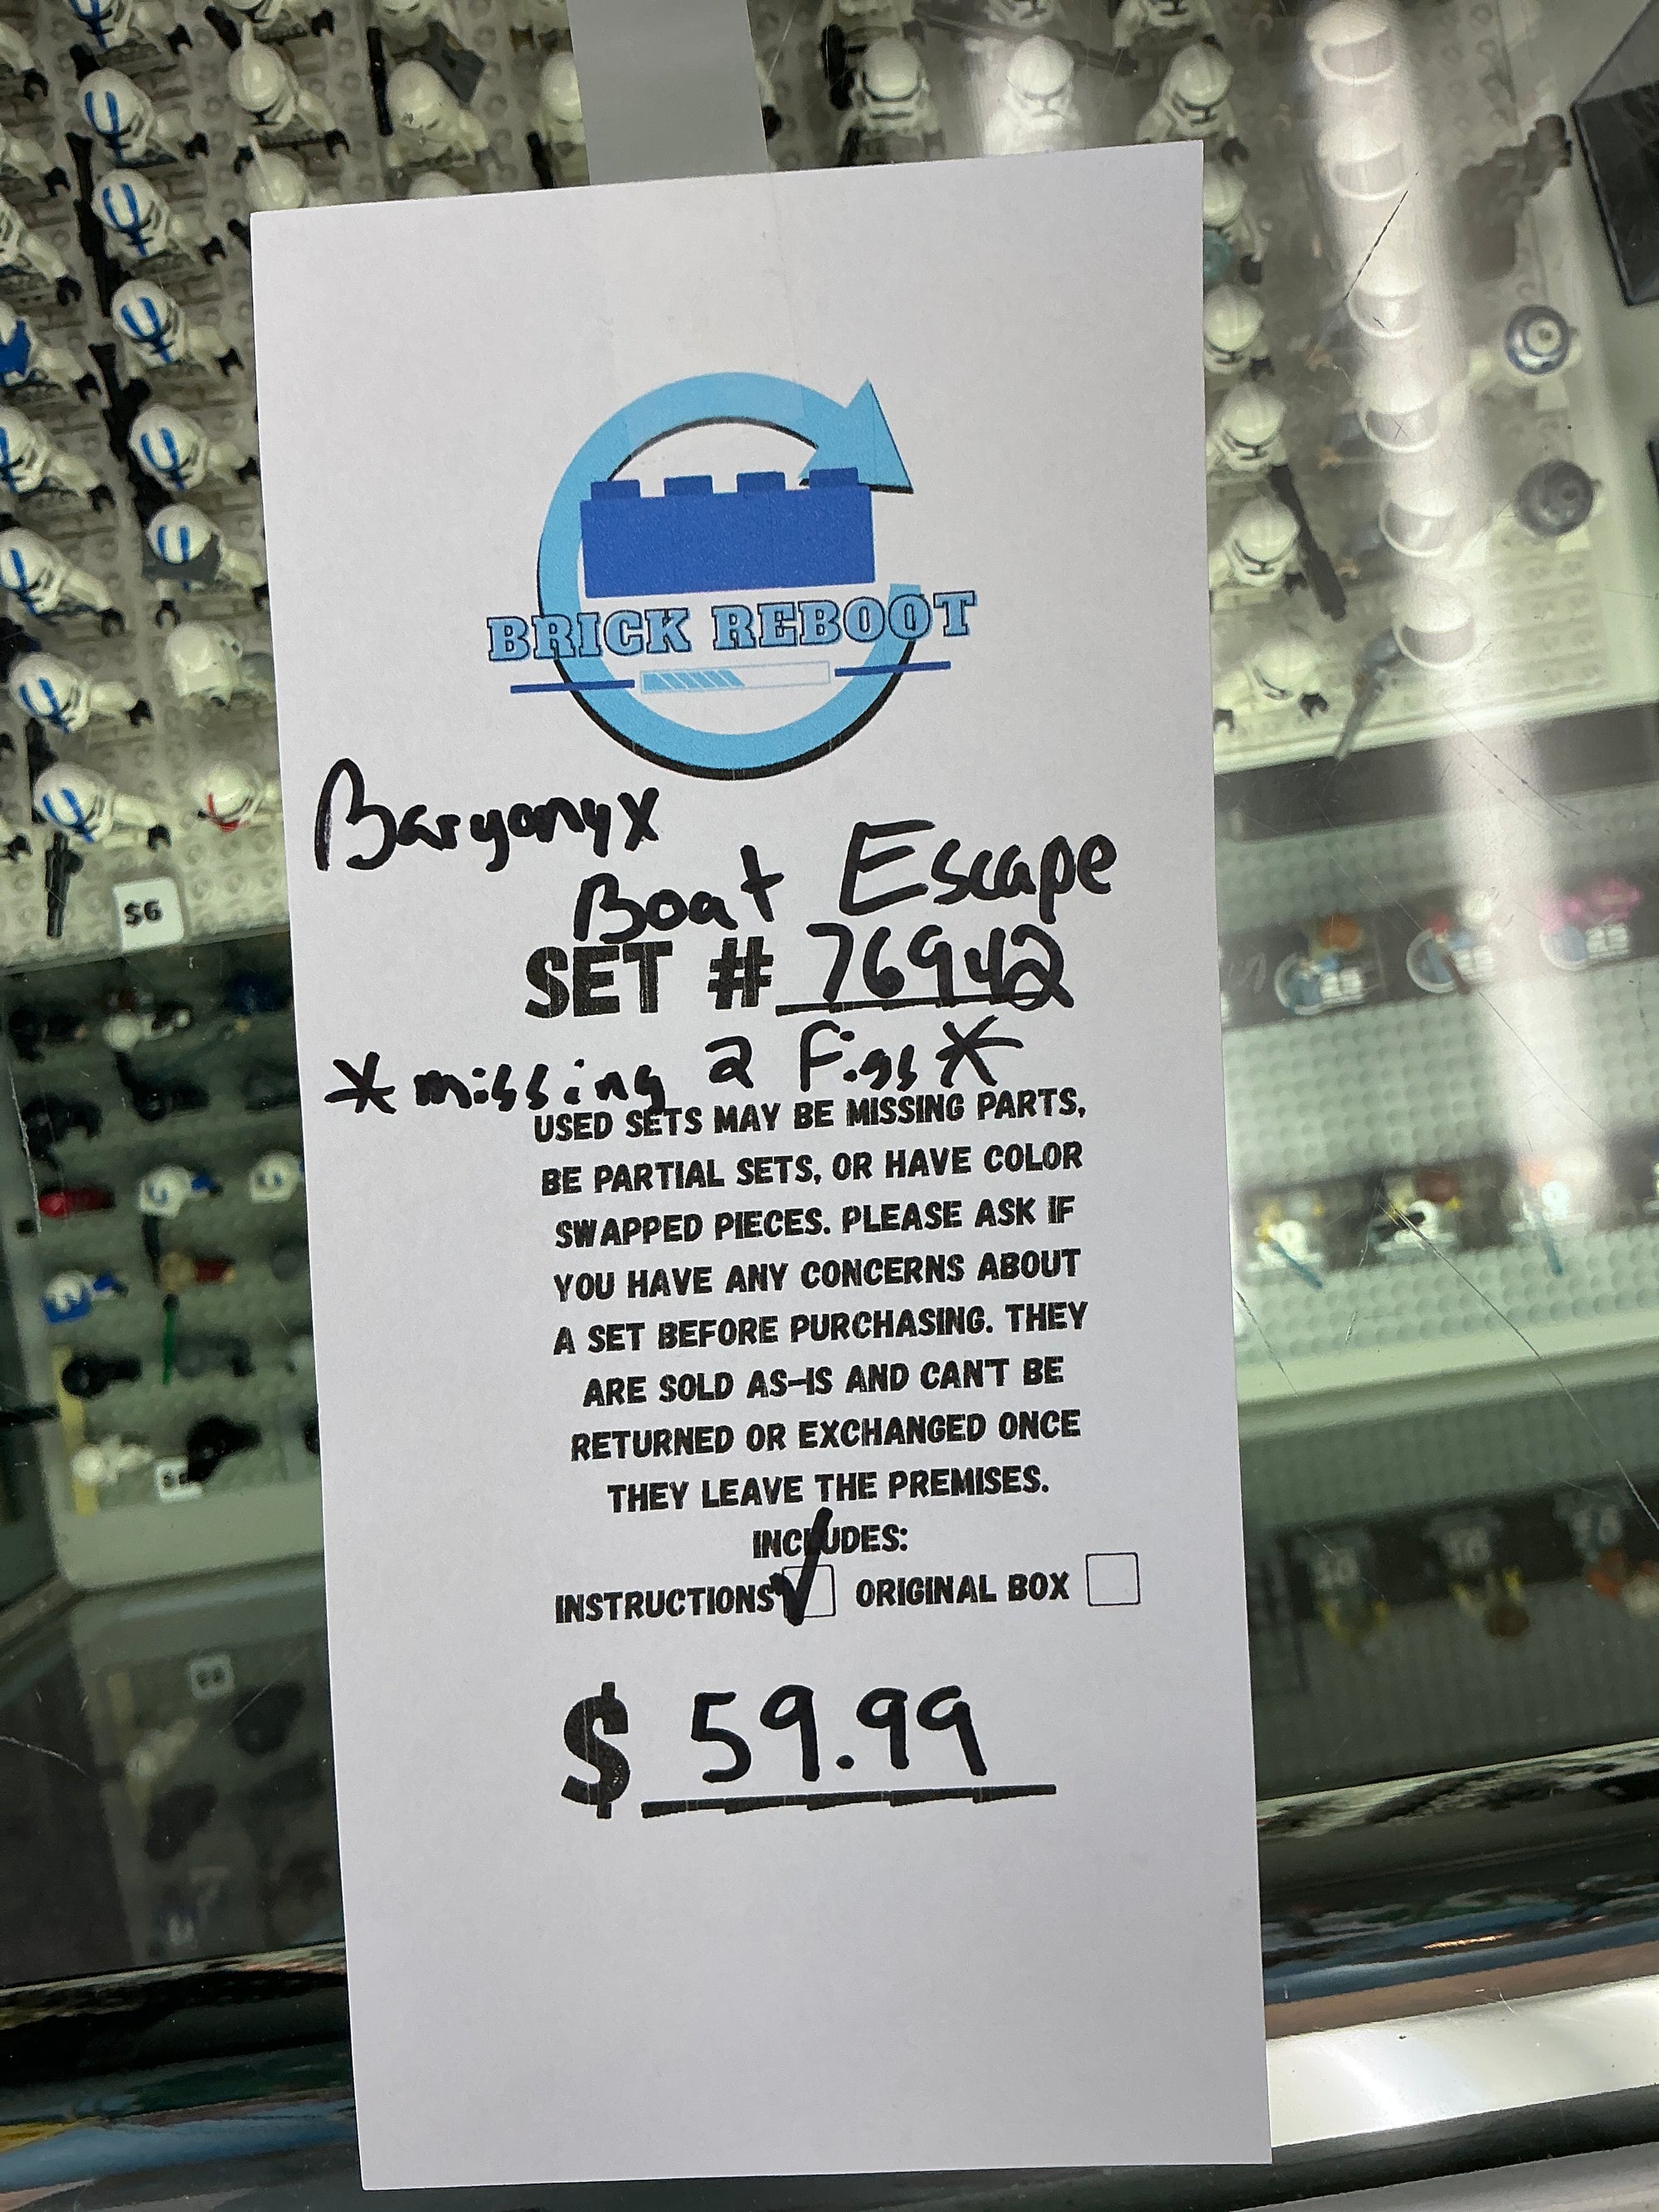 BRICK REBOOT
Baryonyx
Boat Escape
SET # 76942
*missing 2 Figs*
USED SETS MAY BE MISSING PARTS,
BE PARTIAL SETS, OR HAVE COLOR
SWAPPED PIECES. PLEASE ASK IF
YOU HAVE ANY CONCERNS ABOUT
A SET BEFORE PURCHASING. THEY
ARE SOLD AS-IS AND CAN'T BE
RETURNED OR EXCHANGED ONCE
THEY LEAVE THE PREMISES.
INCLUDES:
INSTRUCTIONS ORIGINAL BOX
$ 59.99
$6